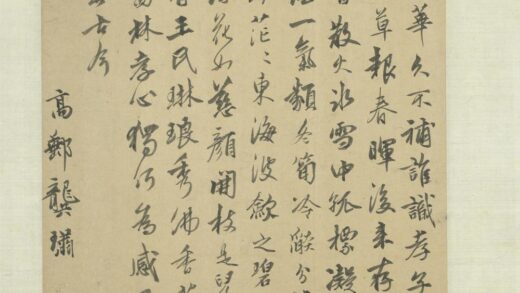 華久不補誰識孝子
草根春暉後來存
散火冰雪中孤標凝
一氣類冬筍冷艷分
茫〻東海波歛之碧
花如慈顏開枝是
王氏琳琅秀佛香
林孝心獨何為感
古今
高郵龔璛